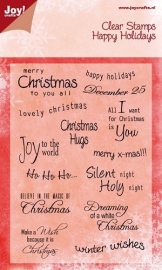 Joy!
Clear Stamps
Happy Holidays
www.joycrafts.nl
merry
Christmas
to you all
happy holidays
December 25
lovely christmas
Christmas
Hugs
All I
want
for
Christmas
is You
Joy to the
world
merry x-mas!!!
Ho Ho Ho...
Silent night
Holy night
BELIEVE IN THE MAGIC OF
Christmas
Dreaming
of a white
Christmas
Make a Wish
because it is
Christmas
winter wishes